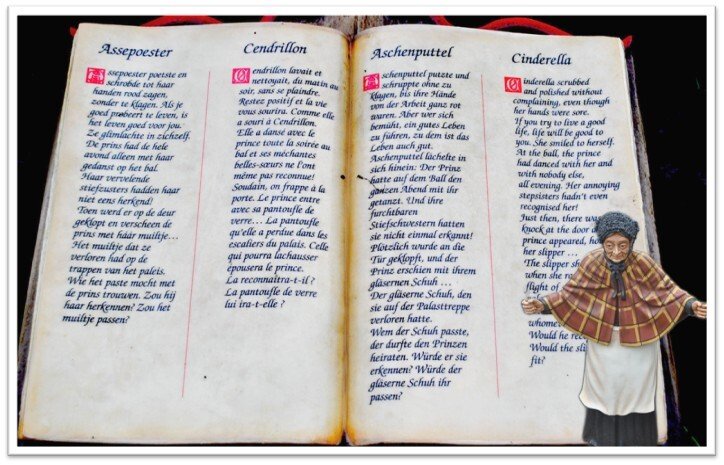 Assepoester
Assepoester poetste en
schrobde tot haar
handen rood zagen,
zonder te klagen. Als je
goed probeert te leven, is
het leven goed voor jou.
Ze glimlachte in zichzelf.
De prins had de hele
avond alleen met haar
gedanst op het bal.
Haar vervelende
stiefzusters hadden haar
niet eens herkend!
Toen werd er op de deur
geklopt en verscheen de
prins met háár muiltje...
Het muiltje dat ze
verloren had op de
trappen van het paleis.
Wie het paste mocht met
de prins trouwen. Zou hij
haar herkennen? Zou het
muiltje passen?
Cendrillon
Cendrillon lavait et
nettoyait, du matin au
soir, sans se plaindre.
Restez positif et la vie
vous sourira. Comme elle
a souri à Cendrillon.
Elle a danse avec le
prince toute la soirée au
bal et ses méchantes
belles-sœurs ne l'ont
même pas reconnue!
Soudain, on frappe à la
porte. Le prince entre
avec sa pantoufle de
verre... La pantoufle
qu'elle a perdue dans les
escaliers du palais. Celle
qui pourra lachausser
épousera le prince.
La reconnaîtra-t-il ?
La pantoufle de verre
lui ira-t-elle ?
Aschenputtel
Aschenputtel putzte und
schruppte ohne zu
klagen, bis ihre Hände
von der Arbeit ganz rot
waren. Aber wer sich
bemüht, ein gutes Leben
zu führen, zu dem ist das
Leben auch gut.
Aschenputtel lächelte in
sich hinein: Der Prinz
hatte auf dem Ball den
ganzen Abend mit ihr
getanzt. Und ihre
furchtbaren
Stiefschwestern hatten
sie nicht einmal erkannt!
Plötzlich wurde an die
Tür geklopft, und der
Prinz erschien mit ihrem
gläsernen Schuh ...
Der gläserne Schuh, den
sie auf der Palasttreppe
verloren hatte.
Wem der Schuh passte,
der durfte den Prinzen
heiraten. Würde er sie
erkennen? Würde der
gläserne Schuh ihr
passen?
Cinderella
Cinderella scrubbed
and polished without
complaining, even though
her hands were sore.
If you try to live a good
life, life will be good to
you. She smiled to herself.
At the ball, the prince
had danced with her and
with nobody else,
all evening. Her annoying
stepsisters hadn't even
recognised her!
Just then, there was
knock at the door
prince appeared,
her slipper ...
The slipper
when she
flight of
Would he
Would the
fit?